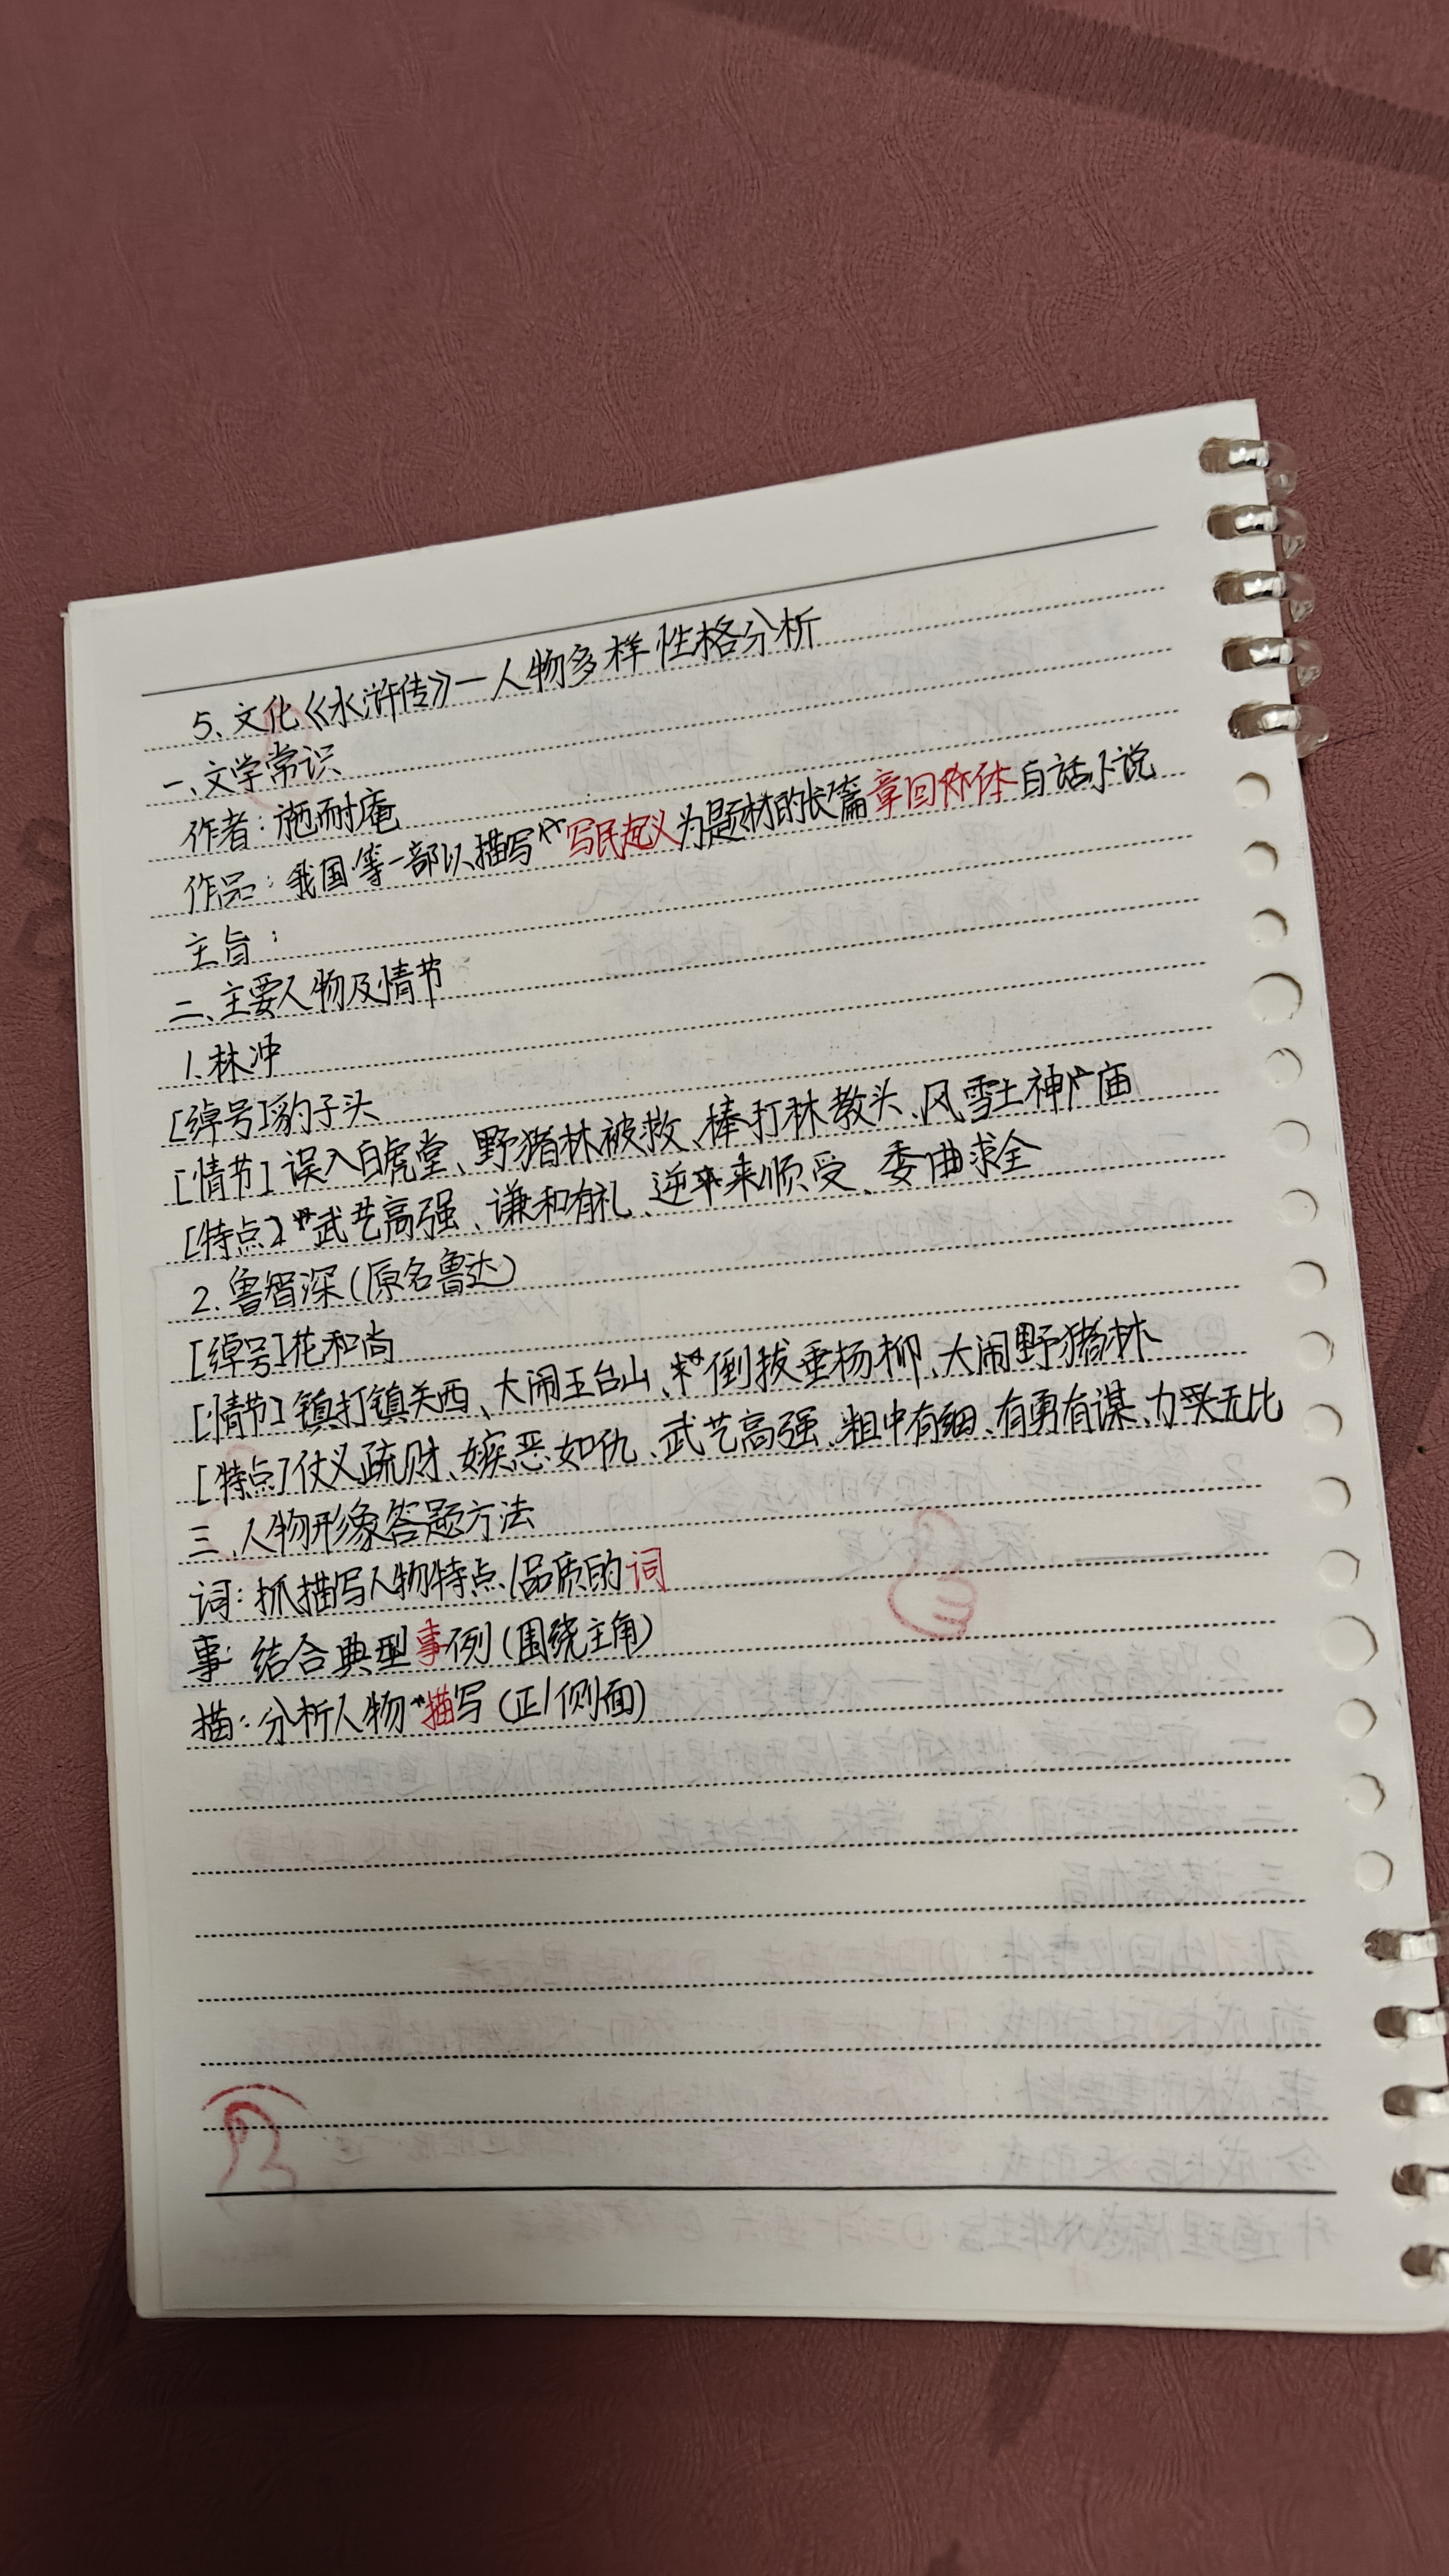 5、文化《水浒传》—人物多样性格分析
一、文学常识
作者：施耐庵
作品：我国等一部以描写写民起义为题材的长篇章回体白话小说
主旨：
二、主要人物及情节
1.林冲
[绰号]豹子头
[情节]误入白虎堂、野猪林被救、棒打林教头、风雪土神庙
[特点]武艺高强、谦和有礼、逆来顺受、委曲求全
2.鲁智深(原名鲁达)
[绰号]花和尚
[情节]镇打镇关西、大闹王台山、倒拔垂杨柳、大闹野猪林
[特点]仗义疏财、嫉恶如仇、武艺高强、粗中有细、有勇有谋、力无比
三、人物形象答题方法
词：抓描写人物特点/品质的词
事：结合典型事例(围绕主角)
描：分析人物描写(正/侧面)